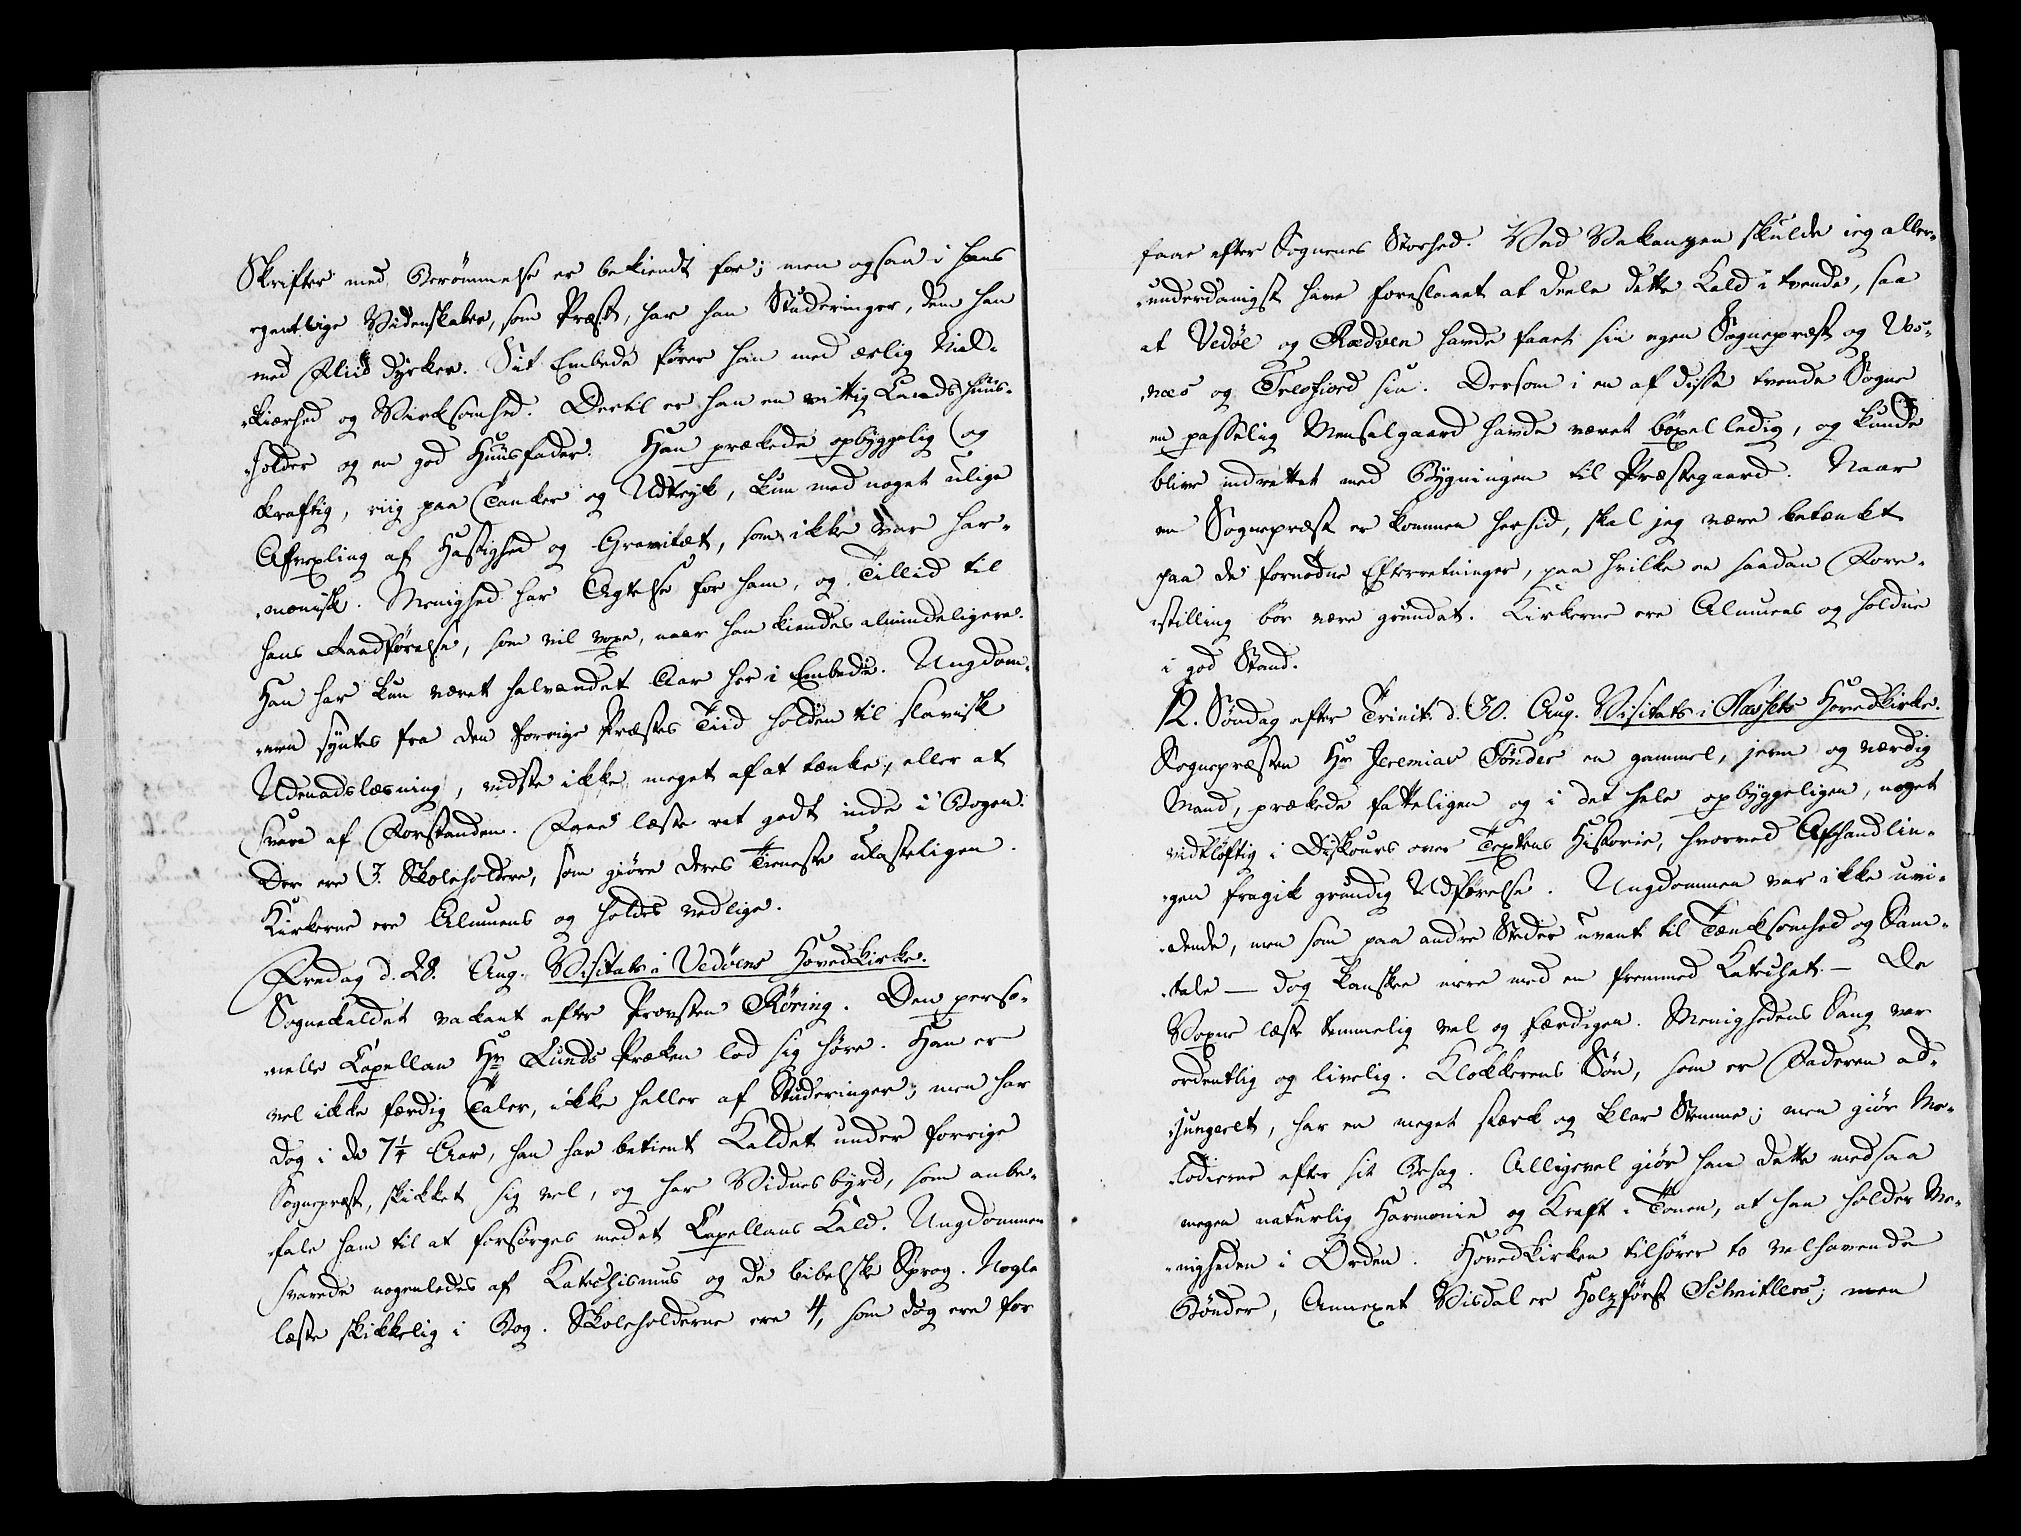 Skrifter med Berömmelse er bekiendt for; men ogsaa i hans
egentlige Videnskaber, som Præst, har han Studeringer, dem han
med Fliid dyrker. Sit Embede fører han med ærlig Nid-
kierhed og Virksomhed. Dertil er han en vittig Landshuus-
holder og en god Huusfader. Han prækede opbyggelig og
kraftig, riig paa Tanker og Udtryk, kun med noget ulige
Afvexling af Hastighed og Gravitæt, som ikke var har-
monisk. Menighed har Agtelse for ham, og Tillid til
hans Anførelse, som vil voxe, naar han kiendes almindeligere.
Han har kun været halvandet Aar her i Embede. Ungdom-
men syntes fra den forrige Præstes Tiid holden til slavisk
Udenadslæsning, vidste ikke meget af at tænke, eller at
svare af Forstanden. Faae læste ret godt inde i Bogen.
Der ere 3. Skoleholdere, som giöre deres Tieneste ulasteligen.
Kirkerne ere Almuens og holdes vedlige.
Fredag d. 28. Aug. Visitats i Vedöens Hovedkirke.
Sognekaldet vakant efter Provsten Röring. Den perso-
nelle Capellan Hr Lunds Præken lod sig höre. Han er
vel ikke færdig Taler, ikke heller af Studeringer; men har
dog i de 7 1/4 Aar, han har betient Kaldet under forrige
Sognepræst, skikket sig vel, og har Vidnesbyrd, som anbe-
fale ham til at forsörges med et Capellans Kald. Ungdommen
svarede nogenledes af Katechismus og de bibelske Sprog. Nogle
læste skikkelig i Bog. Skoleholderne ere 4, som dog ere for
faae efter Sognenes Storhed. Ved Vakanzen skulde ieg aller-
underdanigst have foreslaaet at deele dette Kald i tvende, saa
at Vedöe og Rædven havde faaet sin egen Sognepræst og Vos-
næs og Tresfiord sin. Dersom i en af disse tvende Sogne
en passelig Mensalgaard havde været böxelledig, og kunde
blive indrettet med Bygningen til Præstegaard. Naar
en Sognepræst er kommen hersid, skal jeg være betænkt
paa de fornödne Efterretninger, paa hvilke en saadan Fore-
stilling bör være grundet. Kirkerne ere Almuens og holdne
i god Stand.
12. Söndag efter Trinit. d. 30. Aug. Visitats i Næssets Hovedkirke.
Sognepræsten Hr Jeremias Tönder en gammel, jevn og værdig
Mand, prækede fatteligen og i det hele opbyggeligen, noget
vidtlöftig i Diskours over Textens Historie, hvorved Afhandlin-
gen fragik grundig Udförelse. Ungdommen var ikke uvi-
dende, men som paa andre Steder uvant til Tænksomhed og Sam-
tale — dog kanskee mere med en fremmed Katechet. — De
Voxne læste temmelig vel og færdigen. Menighedens Sang var
ordentlig og livelig. Klokkerens Sön, som er Faderen ad-
jungeret, har en meget stærk og klar Stemme; men giör Me-
lodierne efter sit Behag. Alligevel giör han dette med saa
megen naturlig Harmonie og Kraft i Tonen, at han holder Me-
nigheden i Orden. Hovedkirken tilhörer to velhavende
Bönder, Annexet Visdal er Holzförst Schnitlers; men